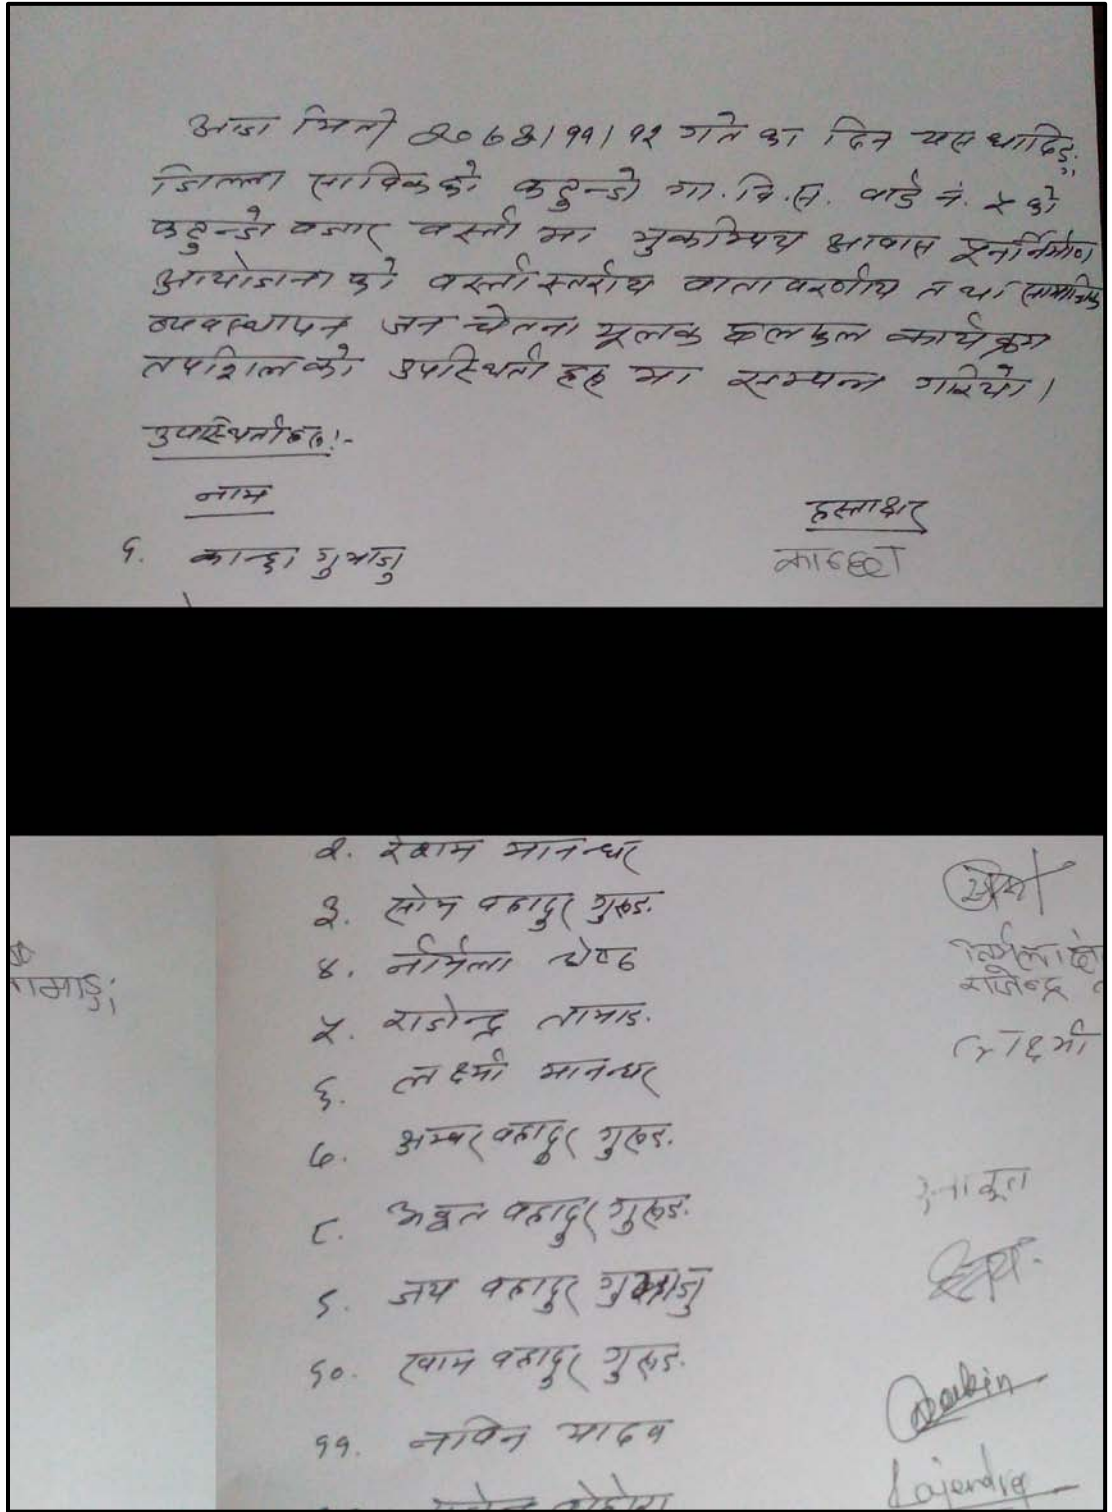 आज मिती २०७३।११।१२ गते का दिन यस धादिङ
जिल्ला साविकको कटुन्जे गा.वि.स. वार्ड नं. ५ को
कटुन्जे वजार वस्ती मा भुकम्पिय आवास पूनर्निर्माण
आयोजना को वस्ती स्तरीय वातावरणीय तथा सामाजिक
व्यवस्थापन जन चेतना मूलक छलफल कार्यक्रम
तपशिलको उपस्थिती हरु मा सम्पन्न गरियो।
उपस्थितीहरु:-
नाम
हस्ताक्षर
१. कान्छा गुभाजु
कान्छा
२. मानन्धर
३. सोम वहादुर गुरुङ
४. र्निमला श्रेष्ठ
तामाङ
राजेन्द्र
५. राजेन्द्र तामाङ
लक्ष्मी
६. लक्ष्मी मानन्धर
७. अम्वर वहादुर गुरुङ
८. वहादुर गुरुङ
९. जय वहादुर गुभाजु
१०. वहादुर गुरुङ
११. नविन यादव
Rajendra